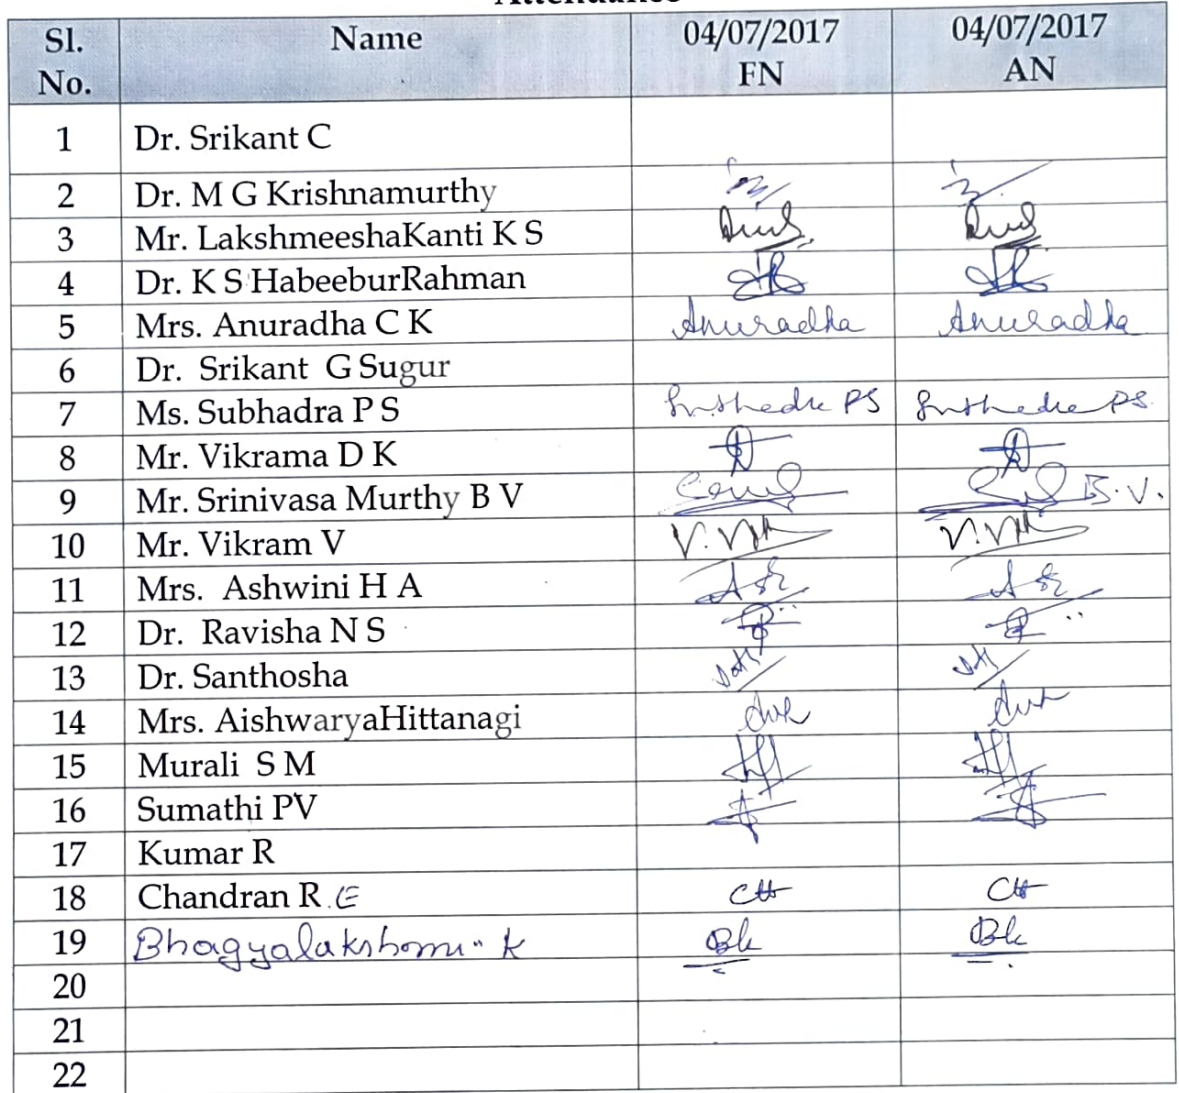 Attendance
Sl. No. Name 04/07/2017 FN 04/07/2017 AN
1 Dr. Srikant C
2 Dr. M G Krishnamurthy
3 Mr. LakshmeeshaKanti K S
4 Dr. K S HabeeburRahman
5 Mrs. Anuradha C K Anuradha Anuradha
6 Dr. Srikant G Sugur
7 Ms. Subhadra P S Subhadra PS Subhadra PS.
8 Mr. Vikrama D K
9 Mr. Srinivasa Murthy B V B.V.
10 Mr. Vikram V
11 Mrs. Ashwini H A
12 Dr. Ravisha N S
13 Dr. Santhosha
14 Mrs. AishwaryaHittanagi
15 Murali S M
16 Sumathi PV
17 Kumar R
18 Chandran R.E
19 Bhagyalakshomi. K Bk Bk
20
21
22